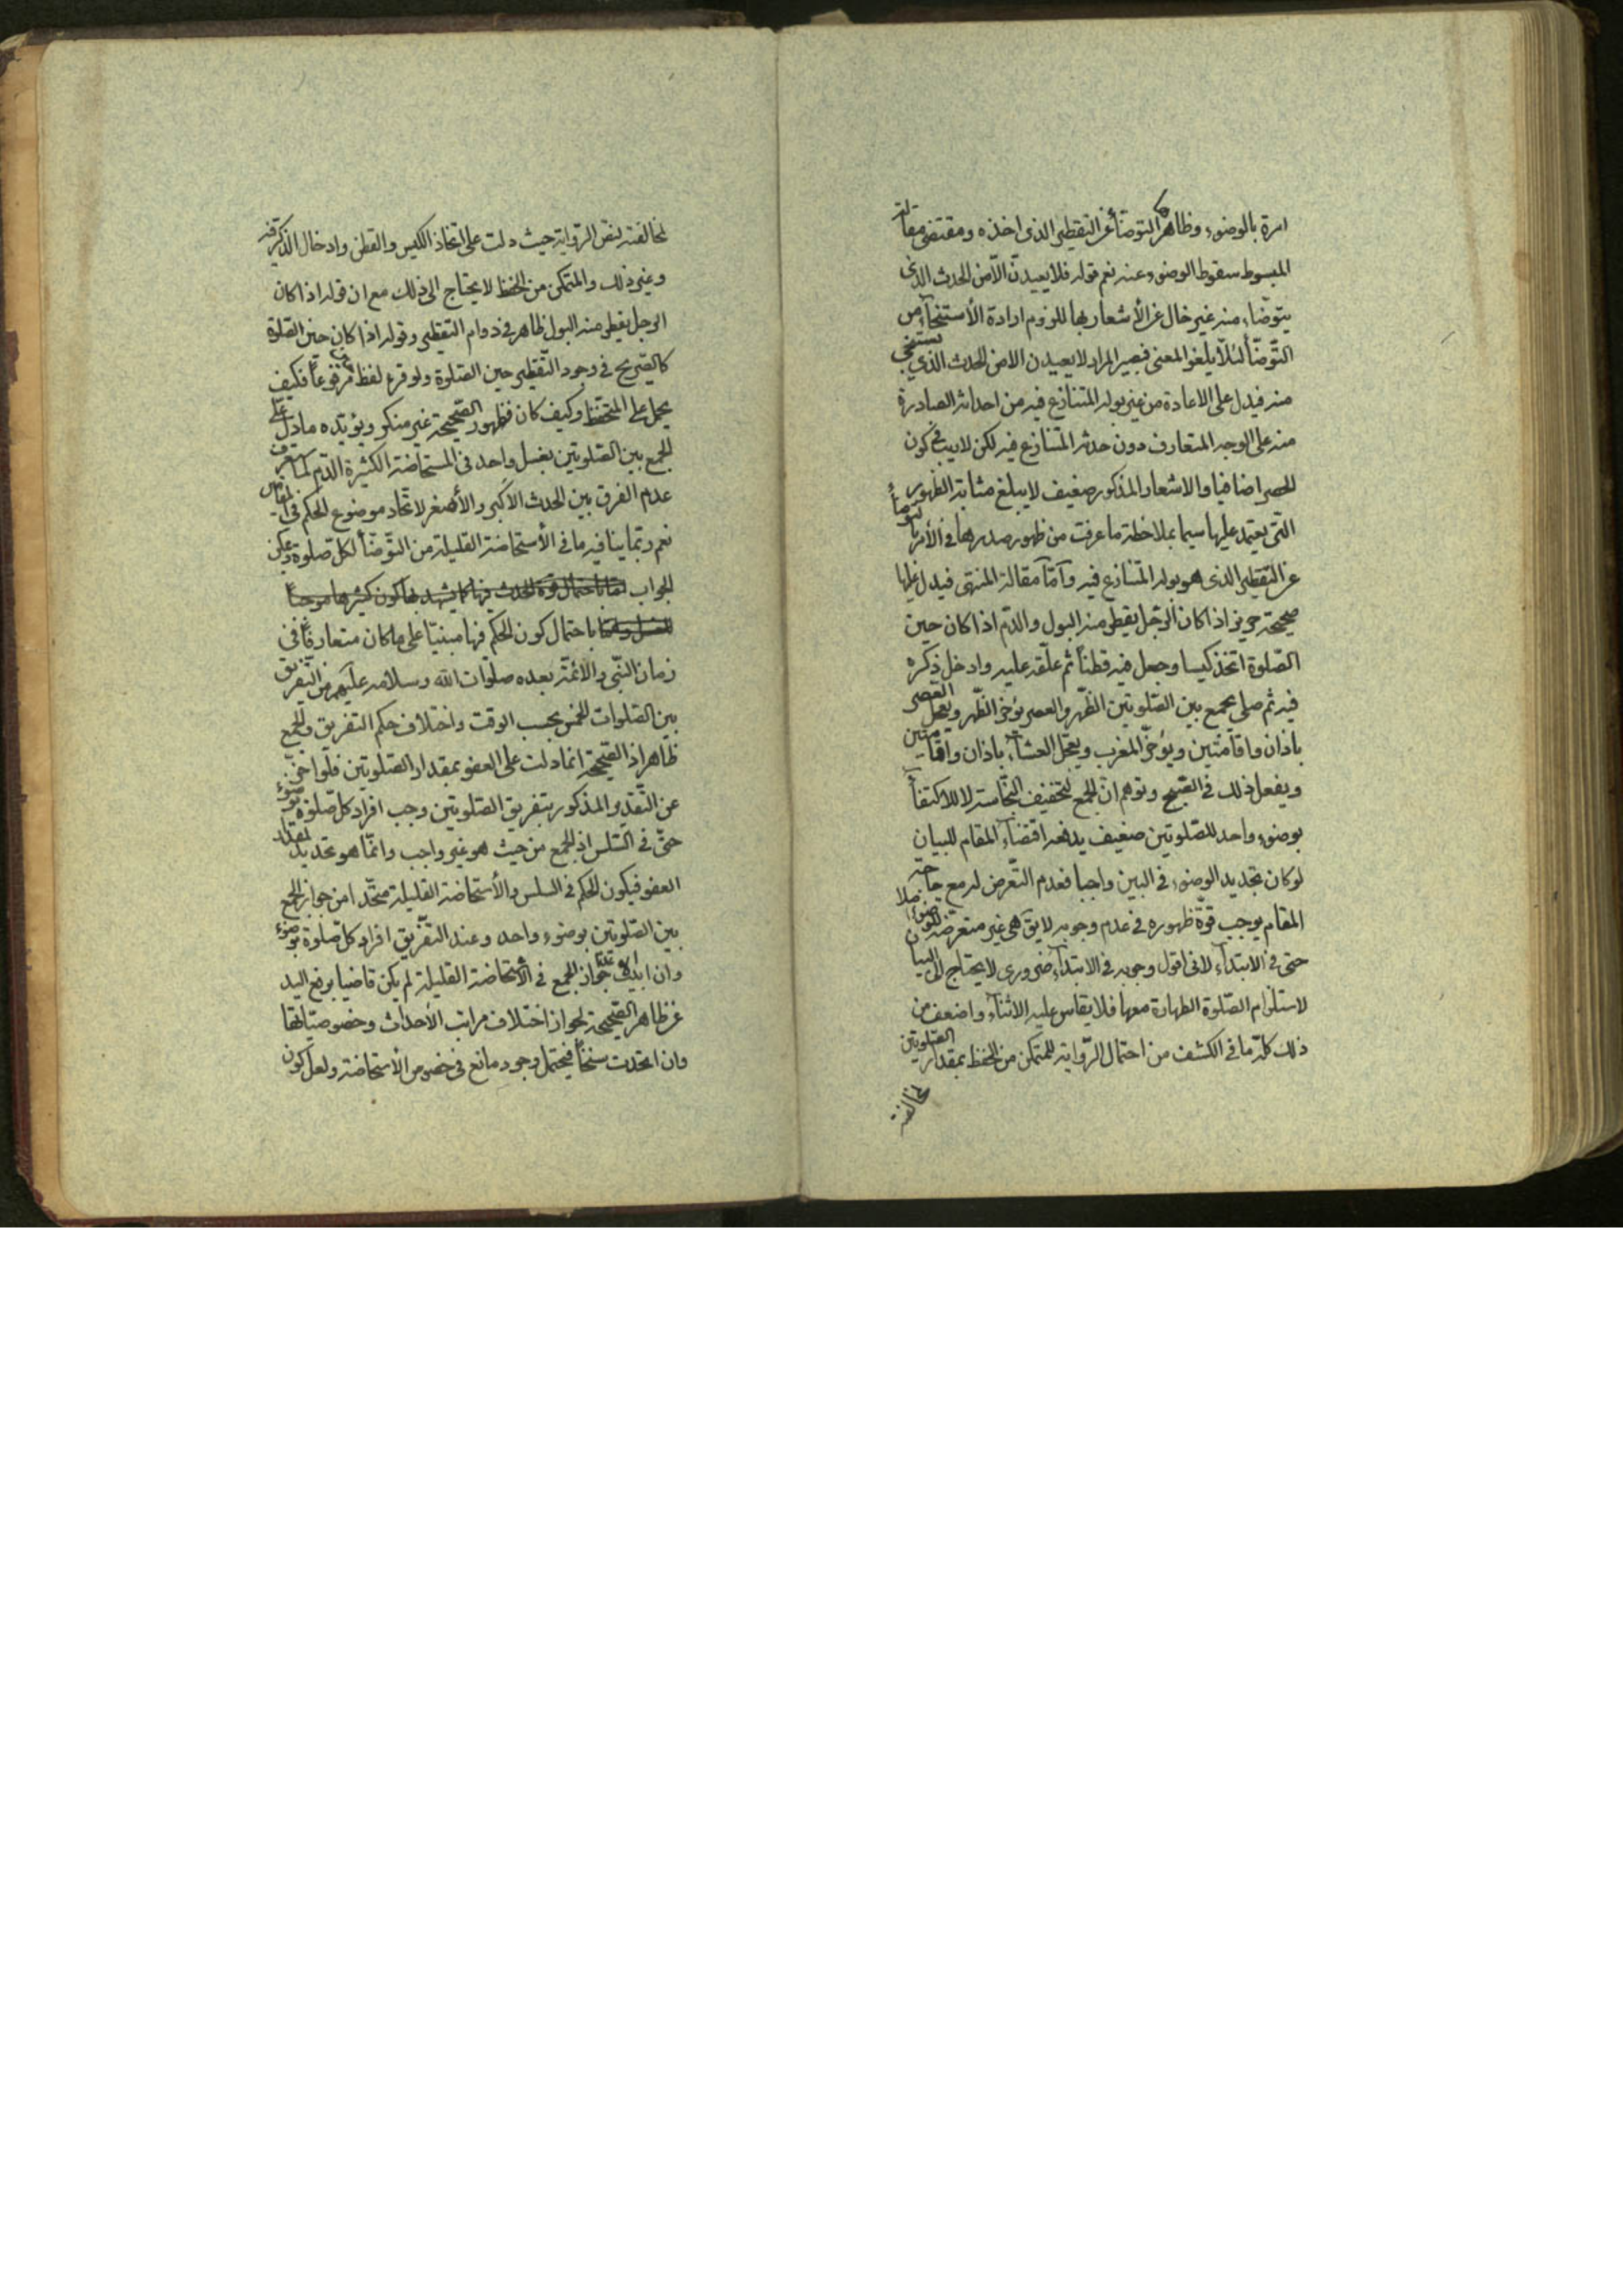 امره بالوضوء وظاهر التوضأ عن التقطير الذي اخذه ومقتضى مقالة
المبسوط سقوط الوضوء عنه نعم قوله فلا يعيدنّ الّا من الحدث الذي
يتوضأ منه غير خال عن الأشعار بها للزوم ارادة الأستنجآء من
التّوضّأ لئلّا يلغو المعنى فيصير المراد لا يعيدن الا من الحدث الذي يستنجي
منه فيدل على الاعادة من غير بوله المتنازع فيه من احداثه الصادرة
منه على الوجه المتعارف دون حدثه المتنازع فيه لكن لا ريب في كون
الحصر اضافيا والاشعار المذكور ضعيف لا يبلغ مثابة الظهور
التي يعتمد عليها سيما بملاحظة ما عرفت من ظهور صدرها في الأمر بالتوضأ
عن التقطير الذي هو بوله المتنازع فيه وأمّا مقالة المنتهى فيدل عليها
صحيحة حريز اذا كان الرّجل يقطر منه البول والدّم اذا كان حين
الصّلوة اتخذ كيسا وجعل فيه قطناً ثم علّقه عليه وادخل ذكره
فيه ثم صلى يجمع بين الصّلوتين الظّهر والعصر يؤخر الظّهر ويعجل العصر
باذان واقامتين ويؤخّر المغرب ويعجّل العشآء باذان واقامتين
ويفعل ذلك في الصّبح وتوهم انّ الجمع لتخفيف النّجاسة لا للاكتفآء
بوضوء واحد للصّلوتين ضعيف يدفعه اقتضآء المقام للبيان
لو كان تجديد الوضوء في البين واجبا فعدم التّعرض له مع حاجة
المقام يوجب قوّة ظهوره في عدم وجوبه لا يق هي غير متعرضة للوضوء اصلا
حتى في الابتدآء لانى اقول وجوبه في الابتدآء ضروري لا يحتاج الى البيان
لاستلزام الصّلوة الطهارة معها فلا يقاس عليه الاثنآء واضعف من
ذلك كلّه ما في الكشف من احتمال الرّواية للمتمكن من الحفظ بمقدار الصّلوتين
لمخالفته
لمخالفته لنصّ الرّواية حيث دلت على اتخاذ الكيس والقطن وادخال الذكر فيه
وغير ذلك والمتمكن من الحفظ لا يحتاج الى ذلك مع ان قوله اذا كان
الرجل يقطر منه البول ظاهر في دوام التقطير وقوله اذا كان حين الصّلوة
كالصّريح في وجود التّقطير حين الصّلوة ولو قرء لفظ مرفوعاً فكيف
يحمل على المتحفظ وكيف كان فظهور الصّحيحة غير منكر ويؤيّده ما دلّ على
الجمع بين الصّلوتين بغسل واحد في المستحاضة الكثيرة الدّم لما عرف
عدم الفرق بين الحدث الاكبر والأصغر لاتّحاد موضوع الحكم في المقامين
نعم ربّما ينافيه ما في الأستحاضة القليلة من التّوضّأ لكلّ صلوة ويمكن
الجواب امّا باحتمال قوة الحدث فيها كما يشهد بها كون كثيرها موجباً
للغسل وامّا باحتمال كون الحكم فيها مبنيّا على ما كان متعارفاً في
زمان النّبي والأئمّة بعده صلوات الله وسلامه عليهم من التّفريق
بين الصّلوات الخمس بحسب الوقت واختلاف حكم التفريق والجمع
ظاهر اذ الصّحيحة انما دلت على العفو بمقدار الصّلوتين فلو اخرج
عن التّقدير المذكور بتفريق الصّلوتين وجب افراد كل صّلوة بوضوء
حتّى في السّلس اذ الجمع من حيث هو غير واجب وانّما هو تحديد لمقدار
العفو فيكون الحكم في السلس والأستحاضة القليلة متّحدا من جواز الجمع
بين الصّلوتين بوضوء واحد وعند التّفريق افراد كل صّلوة بوضوء
وان ابيت عن جواز الجمع في الأستحاضة القليلة لم يكن قاضيا برفع اليد
عن ظاهر الصّحيحة لجواز اختلاف مراتب الأحداث وخصوصيّاتها
وان اتحدت سنخاً فيحتمل وجود مانع في خصوص الأستحاضة ولعل كون